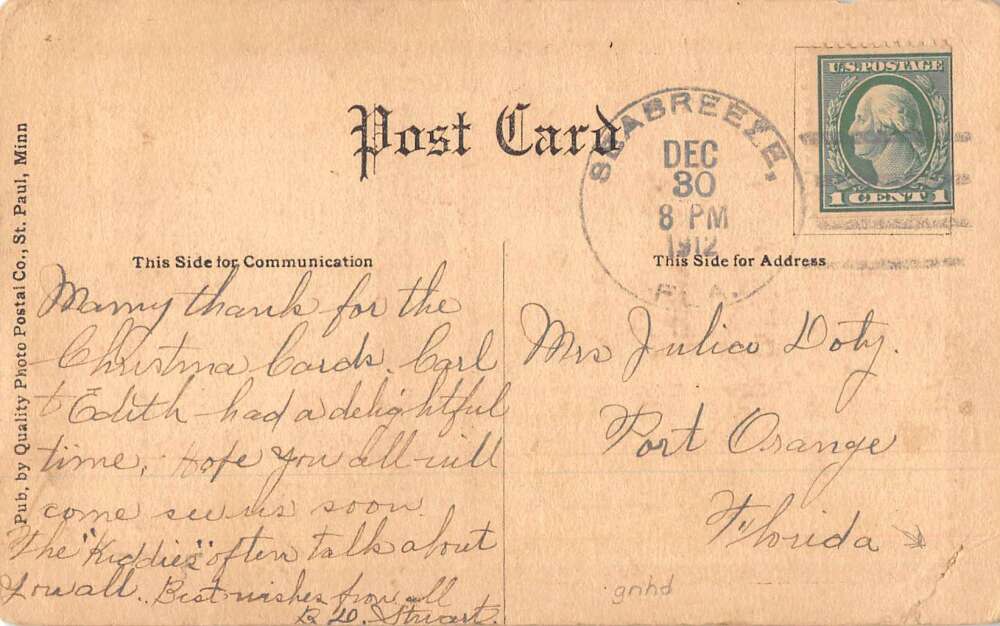 Post Card
U.S. POSTAGE
1 CENT 1
SEABREEZE,
DEC
30
8 PM
1912
FLA.
Pub, by Quality Photo Postal Co., St. Paul, Minn
This Side for Communication
Many thank for the
Christma Cards. Carl
& Edith had a delightful
time, Hope you all will
come see us soon.
The "Kiddies" often talk about
you all. Best wishes from all
Stuart.
This Side for Address
Mrs Julia Doty.
Port Orange
Florida
gnhd